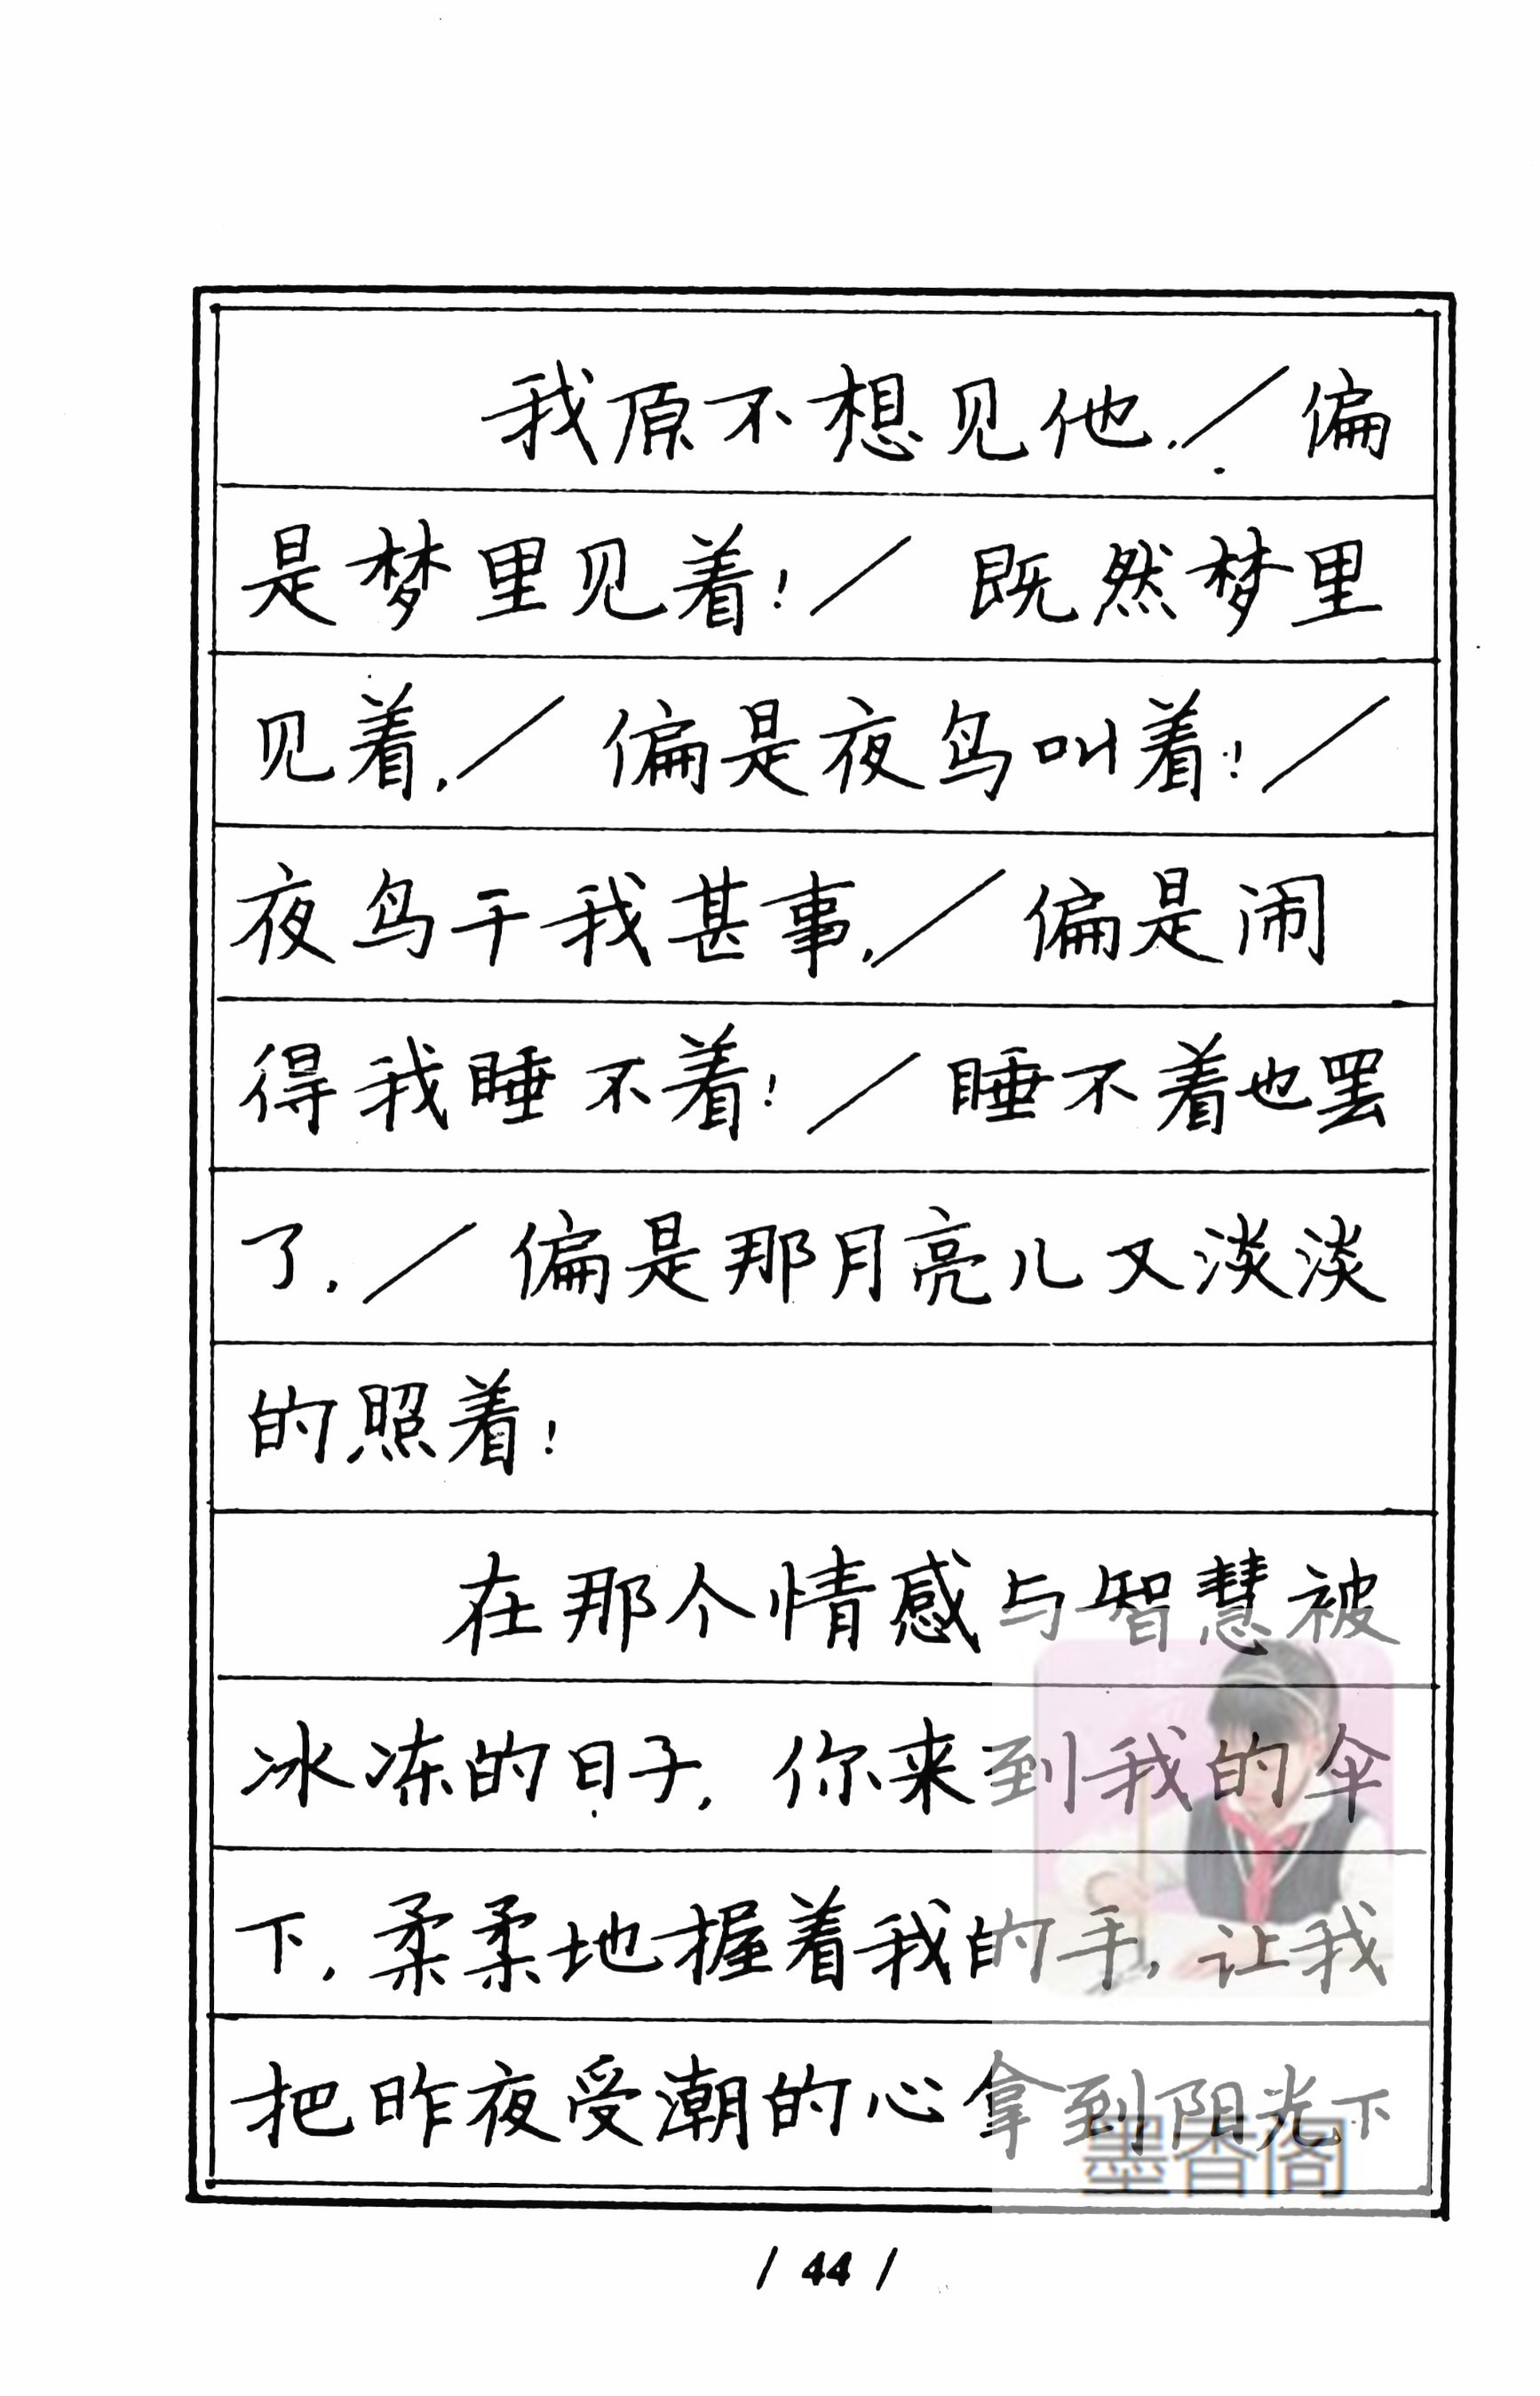 我原不想见他,／偏
是梦里见着!／既然梦里
见着,／偏是夜鸟叫着!／
夜鸟干我甚事,／偏是闹
得我睡不着!／睡不着也罢
了,／偏是那月亮儿又淡淡
的照着!
在那个情感与智慧被
冰冻的日子,你来到我的伞
下,柔柔地握着我的手,让我
把昨夜受潮的心拿到阳光下
墨香阁
/ 44 /